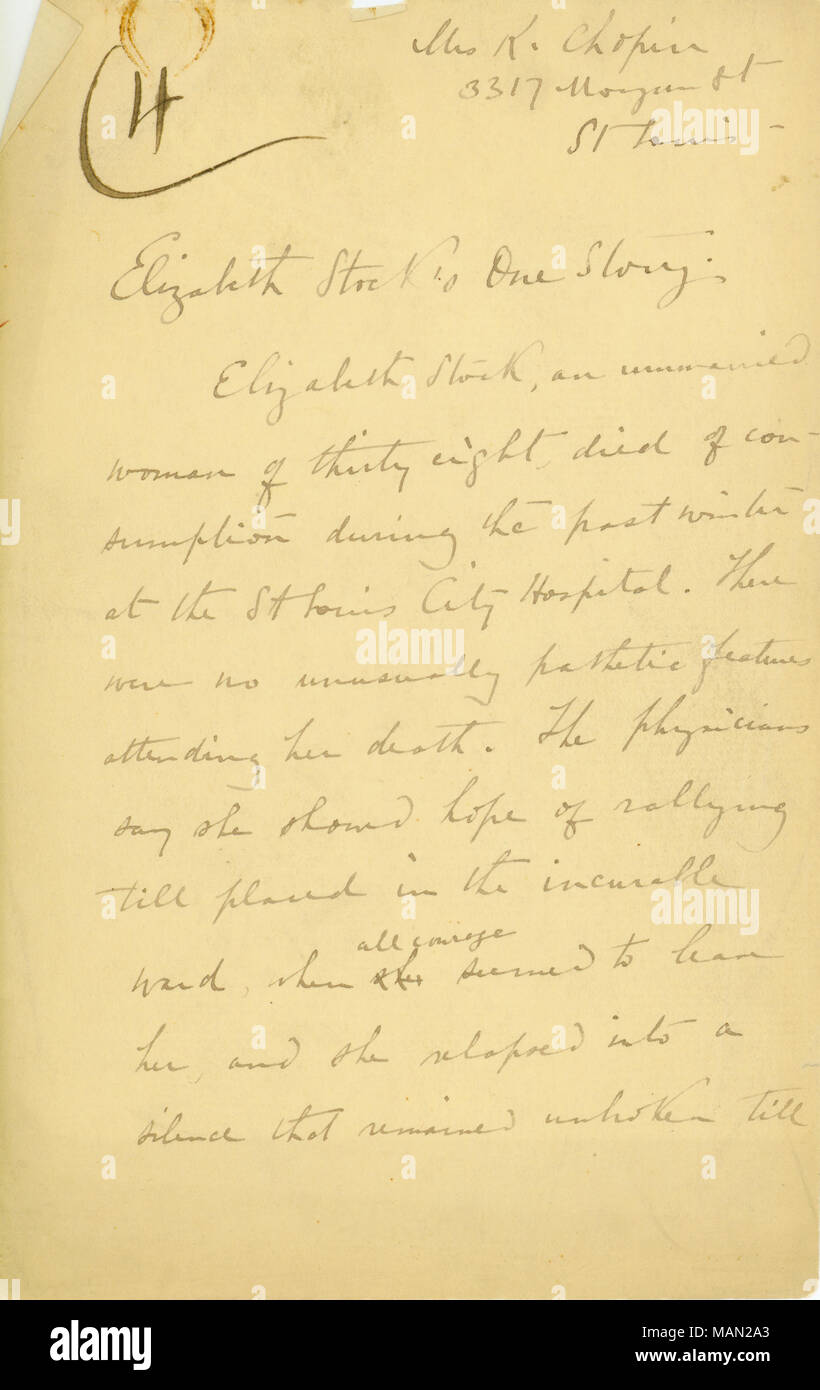 4
Mrs K. Chopin
3317 Morgan St
St Louis —
Elizabeth Stock's One Story.
Elizabeth Stock, an unmarried
woman of thirty eight, died of con-
sumption during the past winter
at the St Louis City Hospital. There
were no unusually pathetic features
attending her death. The physicians
say she showed hope of rallying
till placed in the incurable
all courage
ward, when she seemed to leave
her, and she relapsed into a
silence that remained unbroken till
alamy
alamy
alamy
alamy
alamy
www.alamy.com
Image ID: MAN2A3